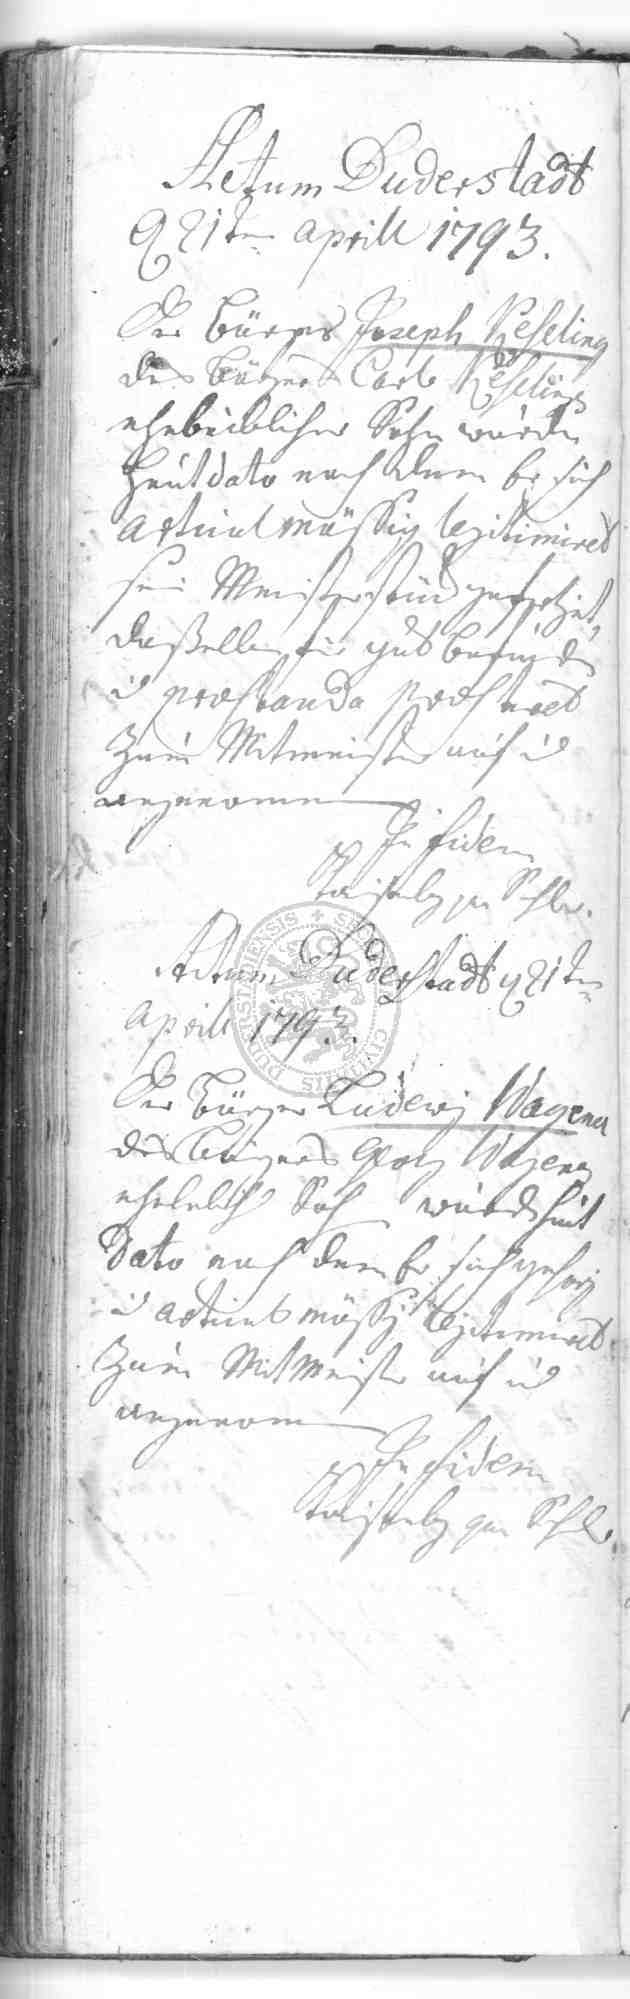 Actum Duderstadt
d 21ten Aprill 1793.
Der Bürger Joseph Keseling
des Bürgers Carl Keselings
eheleiblicher Sohn wurde
heut dato nach dem Er sich
articul mässig legitimiret
sein Meisterstück gefertiget,
dasselbe für gut befunden
u praestanda praestiret
zum Mitmeister auf u
angenomen
In fidem
Actum Duderstadt d 21ten
Aprill 1793.
Der Bürger Ludewig Wagener
des Bürgers Georg Wagener
ehelich Sohn wurde heut
Dato nach dem Er sich gehörig
u articul mässig legitimiret
zum Mitmeister auf u
angenomen
In fidem